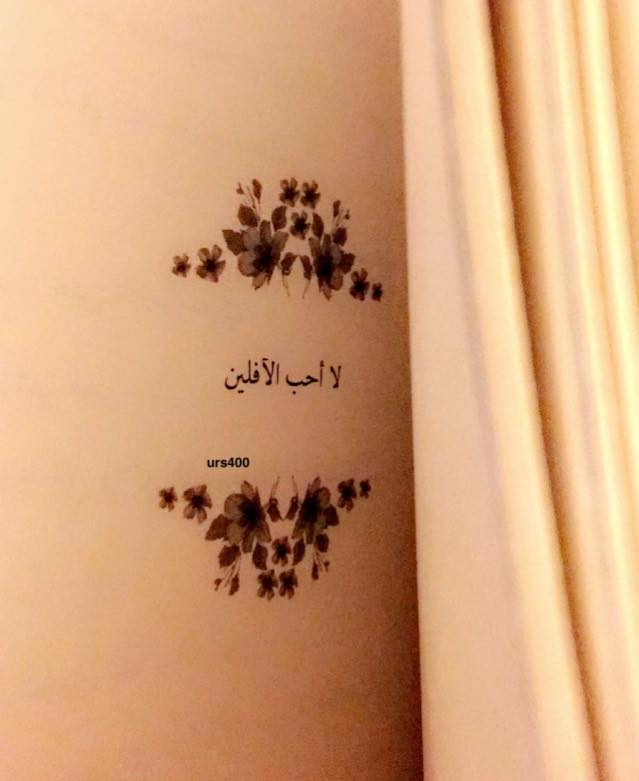 لا أحب الآفلين
urs400